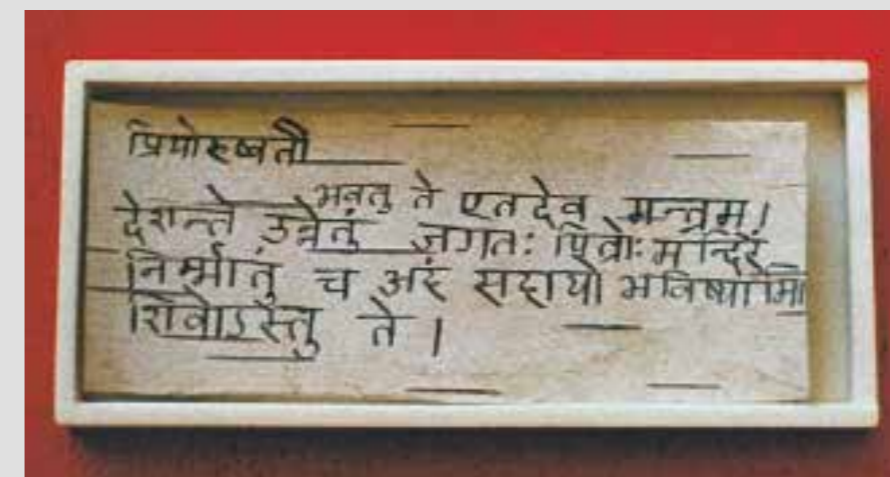 प्रियोरुष्वतौ
भवतु ते एतदेव मन्त्रम।
देशान्ते उन्नेतुं जगतः पित्रोः मन्दिरं
निर्मातुं च अहं सहायो भविष्यामि
शिवोऽस्तु ते।